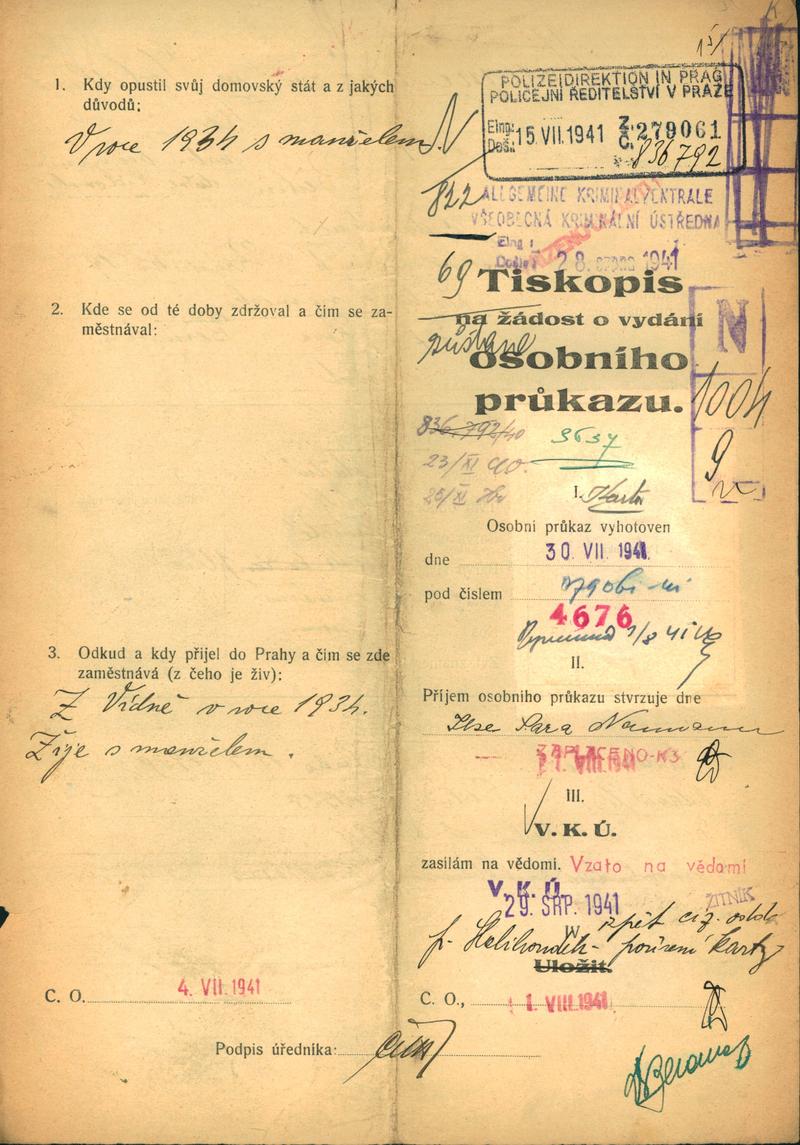 1. Kdy opustil svůj domovský stát a z jakých
důvodů:
V roce 1934 s manželem
2. Kde se od té doby zdržoval a čím se za-
městnával:
3. Odkud a kdy přijel do Prahy a čím se zde
zaměstnává (z čeho je živ):
Z Vídně v roce 1934.
Žije s manželem.
C. O. 4. VII. 1941
Podpis úředníka:
15/
POLIZEIDIREKTION IN PRAG
POLICEJNÍ ŘEDITELSTVÍ V PRAZE
Eing.: Doš.: 15. VII. 1941 Z. Č. 279061
836792
822
ALLGEMEINE KRIMINALZENTRALE
VŠEOBECNÁ KRIMINÁLNÍ ÚSTŘEDNA
Eing:
Došlo: 28. SRPNA 1941
69
Tiskopis
na žádost o vydání
zůstane
osobního
průkazu.
N
1004
9
836.792/40
3637
23/XI 40.
I. Karta
Osobní průkaz vyhotoven
dne 30 VII 1941
pod číslem
4676
II.
Příjem osobního průkazu stvrzuje dne
Ilse Sara Naumann
ZAPLACENO-K3
1. VIII. 1941
III.
V. K. Ú.
zasílám na vědomí. Vzato na vědomí
V. K. Ú.
29. SRP. 1941
ŽITNÍK
zpět
pořízení karty
Uložit.
C. O., 1 VIII 1941